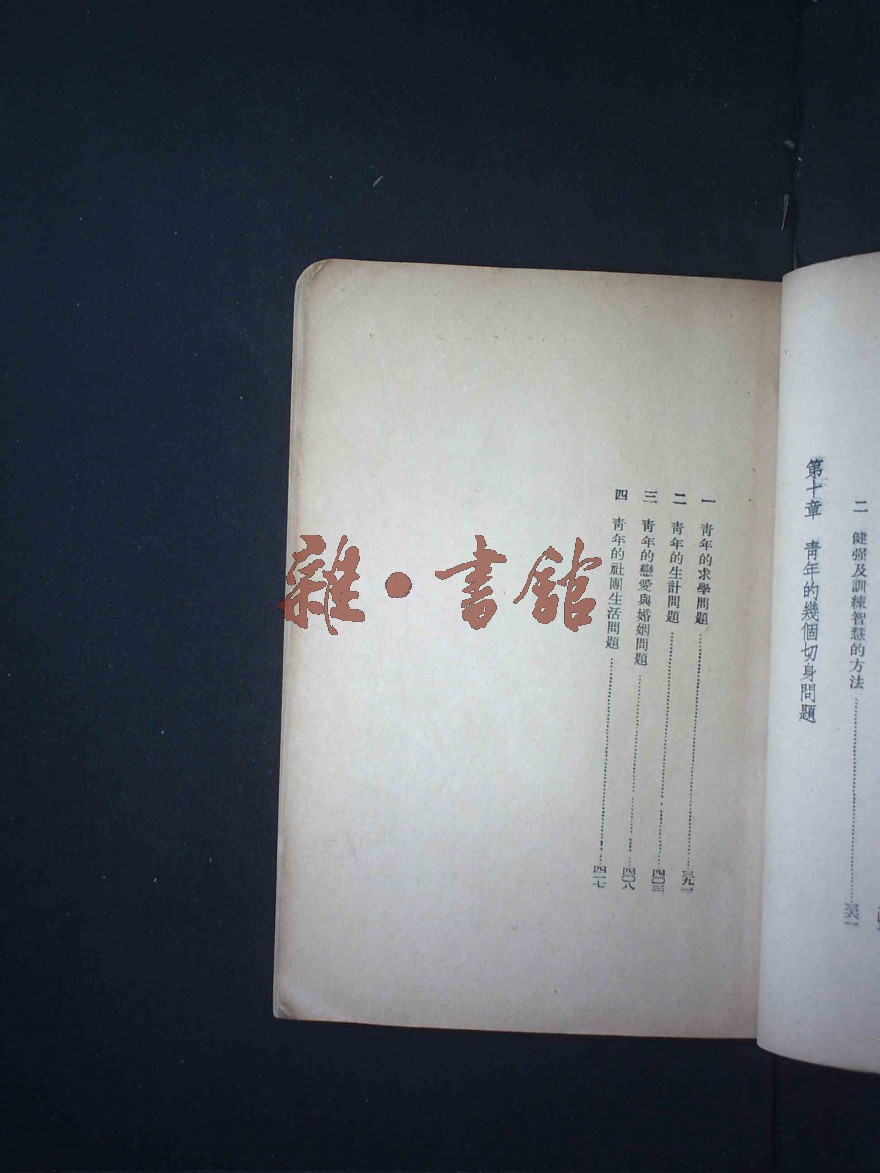 二　健强及訓練智慧的方法……三六一
第十章　靑年的幾個切身問題
一　靑年的求學問題……三九一
二　靑年的生計問題……四〇三
三　靑年的戀愛與婚姻問題……四〇八
四　靑年的社團生活問題……四一七
雜·書舘